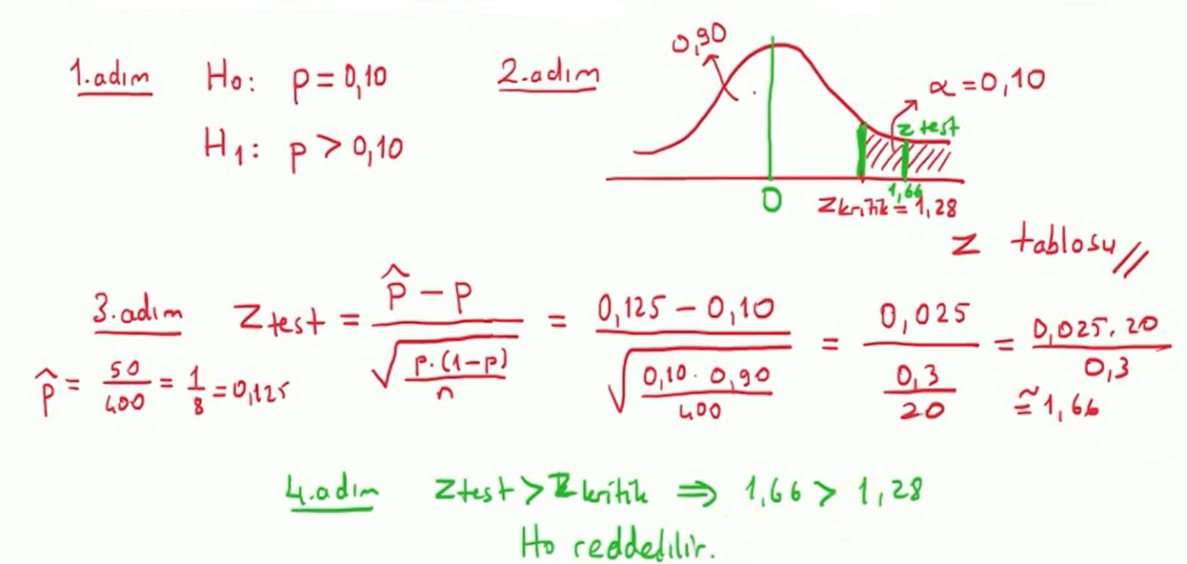 1.adım H₀: p = 0,10
H₁: p > 0,10
2.adım
0,90
α = 0,10
z test
0
1,66
Zkritik = 1,28
Z tablosu //
3.adım Ztest = (p̂ − p) / √(p.(1−p)/n) = (0,125 − 0,10) / √(0,10 . 0,90/400) = 0,025 / (0,3/20) = 0,025 . 20 / 0,3
≅ 1,66
p̂ = 50/400 = 1/8 = 0,125
4.adım Ztest > Zkritik ⇒ 1,66 > 1,28
Ho reddedilir.